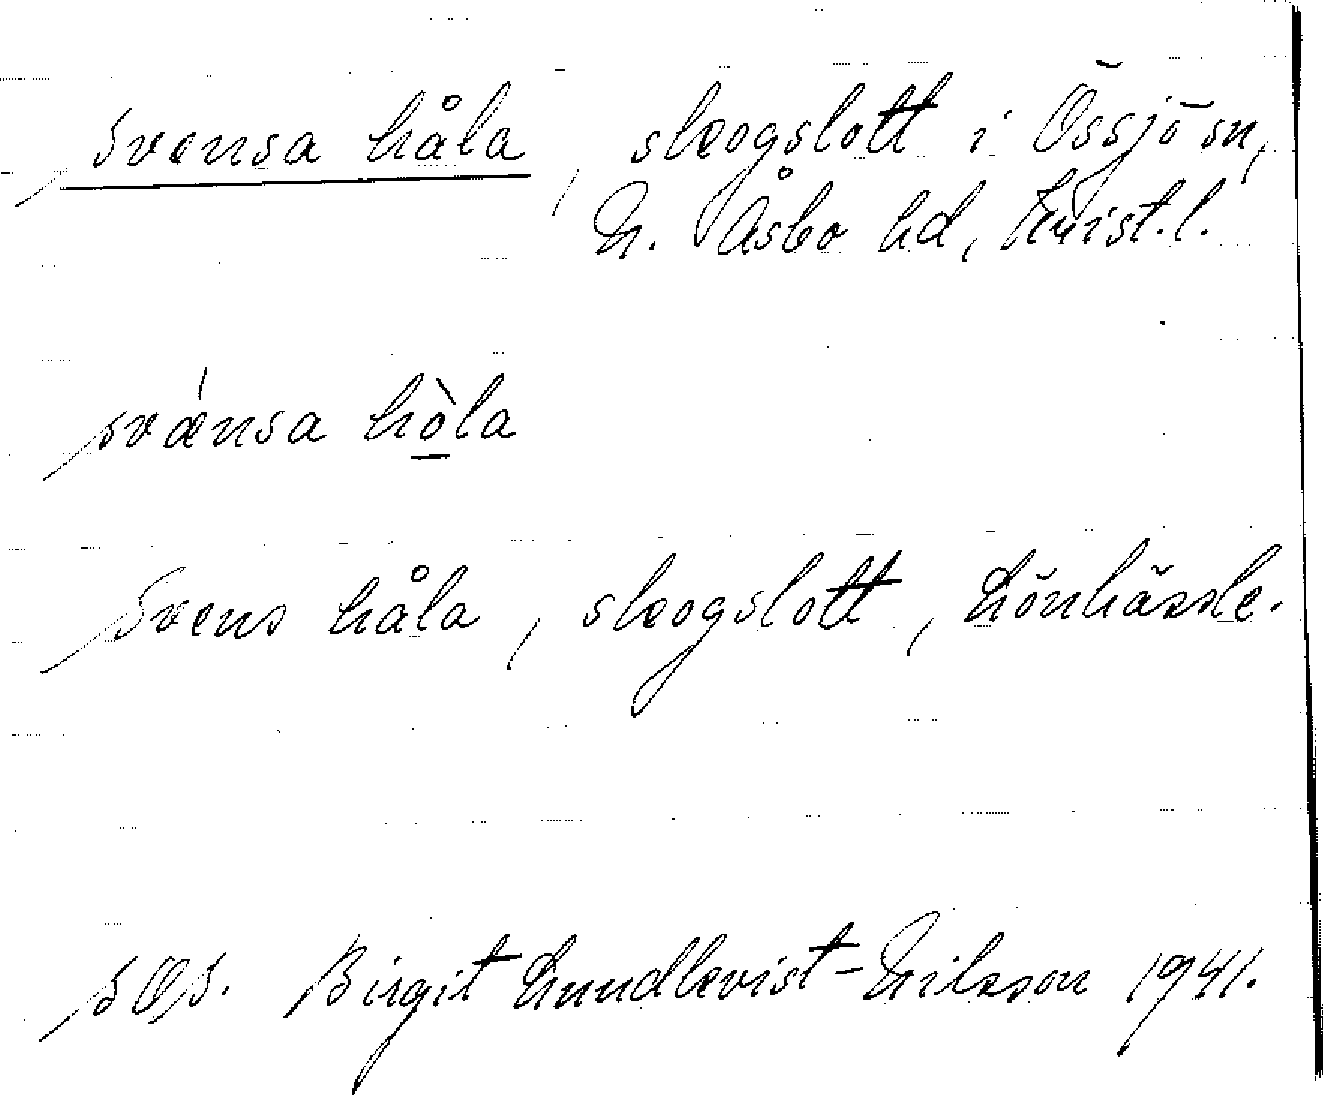 Svensa håla, skogslott i Össjö sn,
N. Åsbo hd, Krist.l.
svænsa hòla
Svens håla, skogslott, Lönhässle.
Birgit Lundkvist-Nilsson 1941.